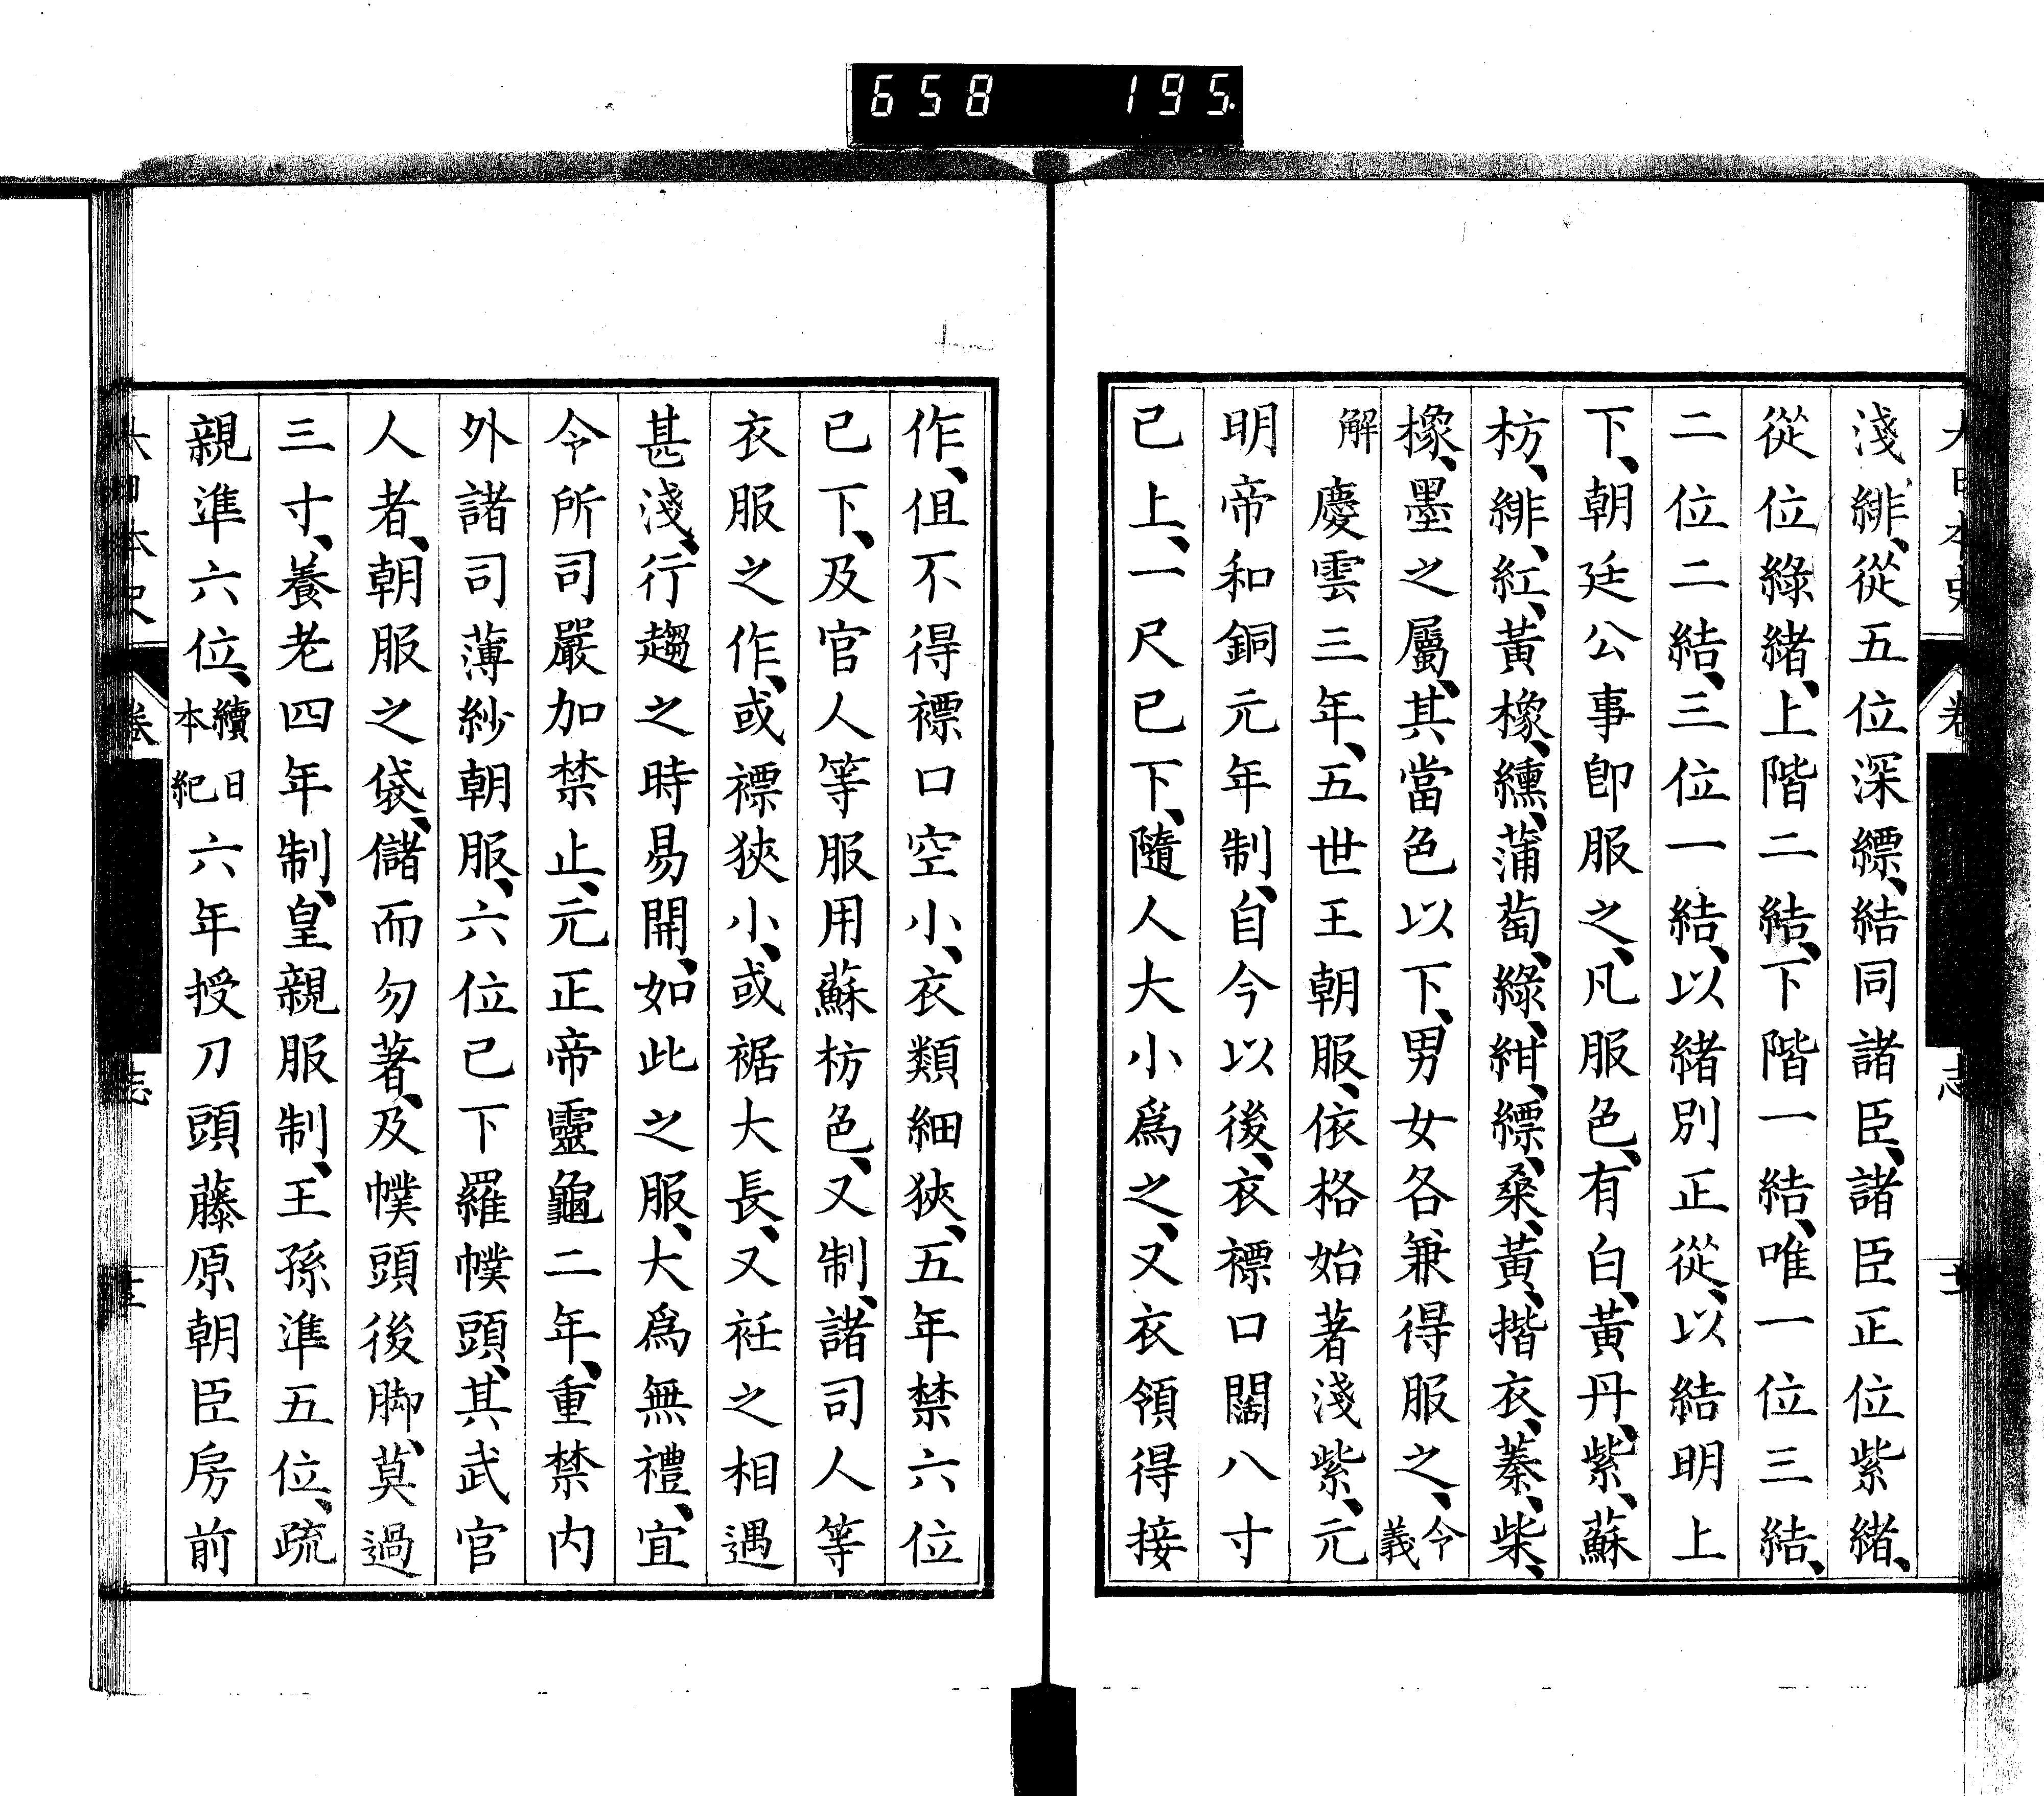 658 195.
大日本史 卷 志
淺緋、從五位深縹、結同諸臣、諸臣正位紫緒、
從位綠緒、上階二結、下階一結、唯一位三結、
二位二結、三位一結、以緒別正從、以結明上
下、朝廷公事卽服之、凡服色、有白、黃丹、紫、蘇
枋、緋、紅、黃橡、纁、蒲萄、綠、紺、縹、桑、黃、揩衣、蓁、柴、
橡、墨之屬、其當色以下、男女各兼得服之、令義
解慶雲三年、五世王朝服、依格始著淺紫、元
明帝和銅元年制、自今以後、衣褾口闊八寸
已上、一尺已下、隨人大小爲之、又衣領得接
作、伹不得褾口空小、衣類細狹、五年禁六位
已下、及官人等服用蘇枋色、又制、諸司人等
衣服之作、或褾狹小、或裾大長、又衽之相遇
甚淺、行趨之時易開、如此之服、大爲無禮、宜
令所司嚴加禁止、元正帝靈龜二年、重禁內
外諸司薄紗朝服、六位已下羅幞頭、其武官
人者、朝服之袋、儲而勿著、及幞頭後脚、莫過
三寸、養老四年制、皇親服制、王孫準五位、疏
親準六位、續日本紀六年授刀頭藤原朝臣房前
大日本史 卷 志